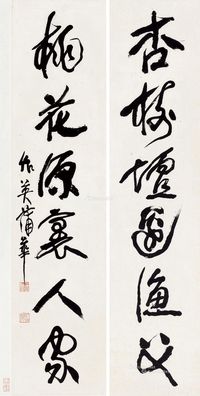 杏树坛边渔父
桃花源里人家
作英蒲华